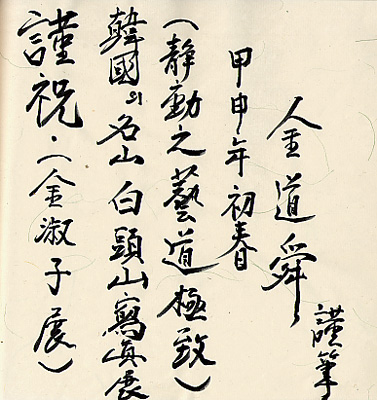 謹祝·(金淑子展)
韓國의 名山 白頭山 寫眞展
(静動之藝道極致)
甲申年 初春
金道舜
謹筆